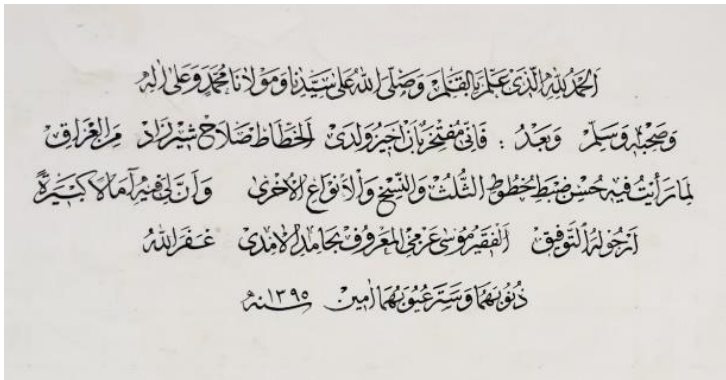 الحمد لله الذى علم بالقلم وصلى الله على سيدنا ومولانا محمد وعلى اله
وصحبه وسلم وبعد : فانى مفتخر بان اجيز ولدى الخطاط صلاح شيرزاد من العراق
لما رأيت فيه حسن ضبط خطوط الثلث والنسخ والأنواع الأخرى وأن لى فيه آمالا كبيرة
ارجو له التوفيق الفقير موسى عزمى المعروف بحامد الامدى غفر الله
ذنوبهما وستر عيوبهما امين سنه ١٣٩٥